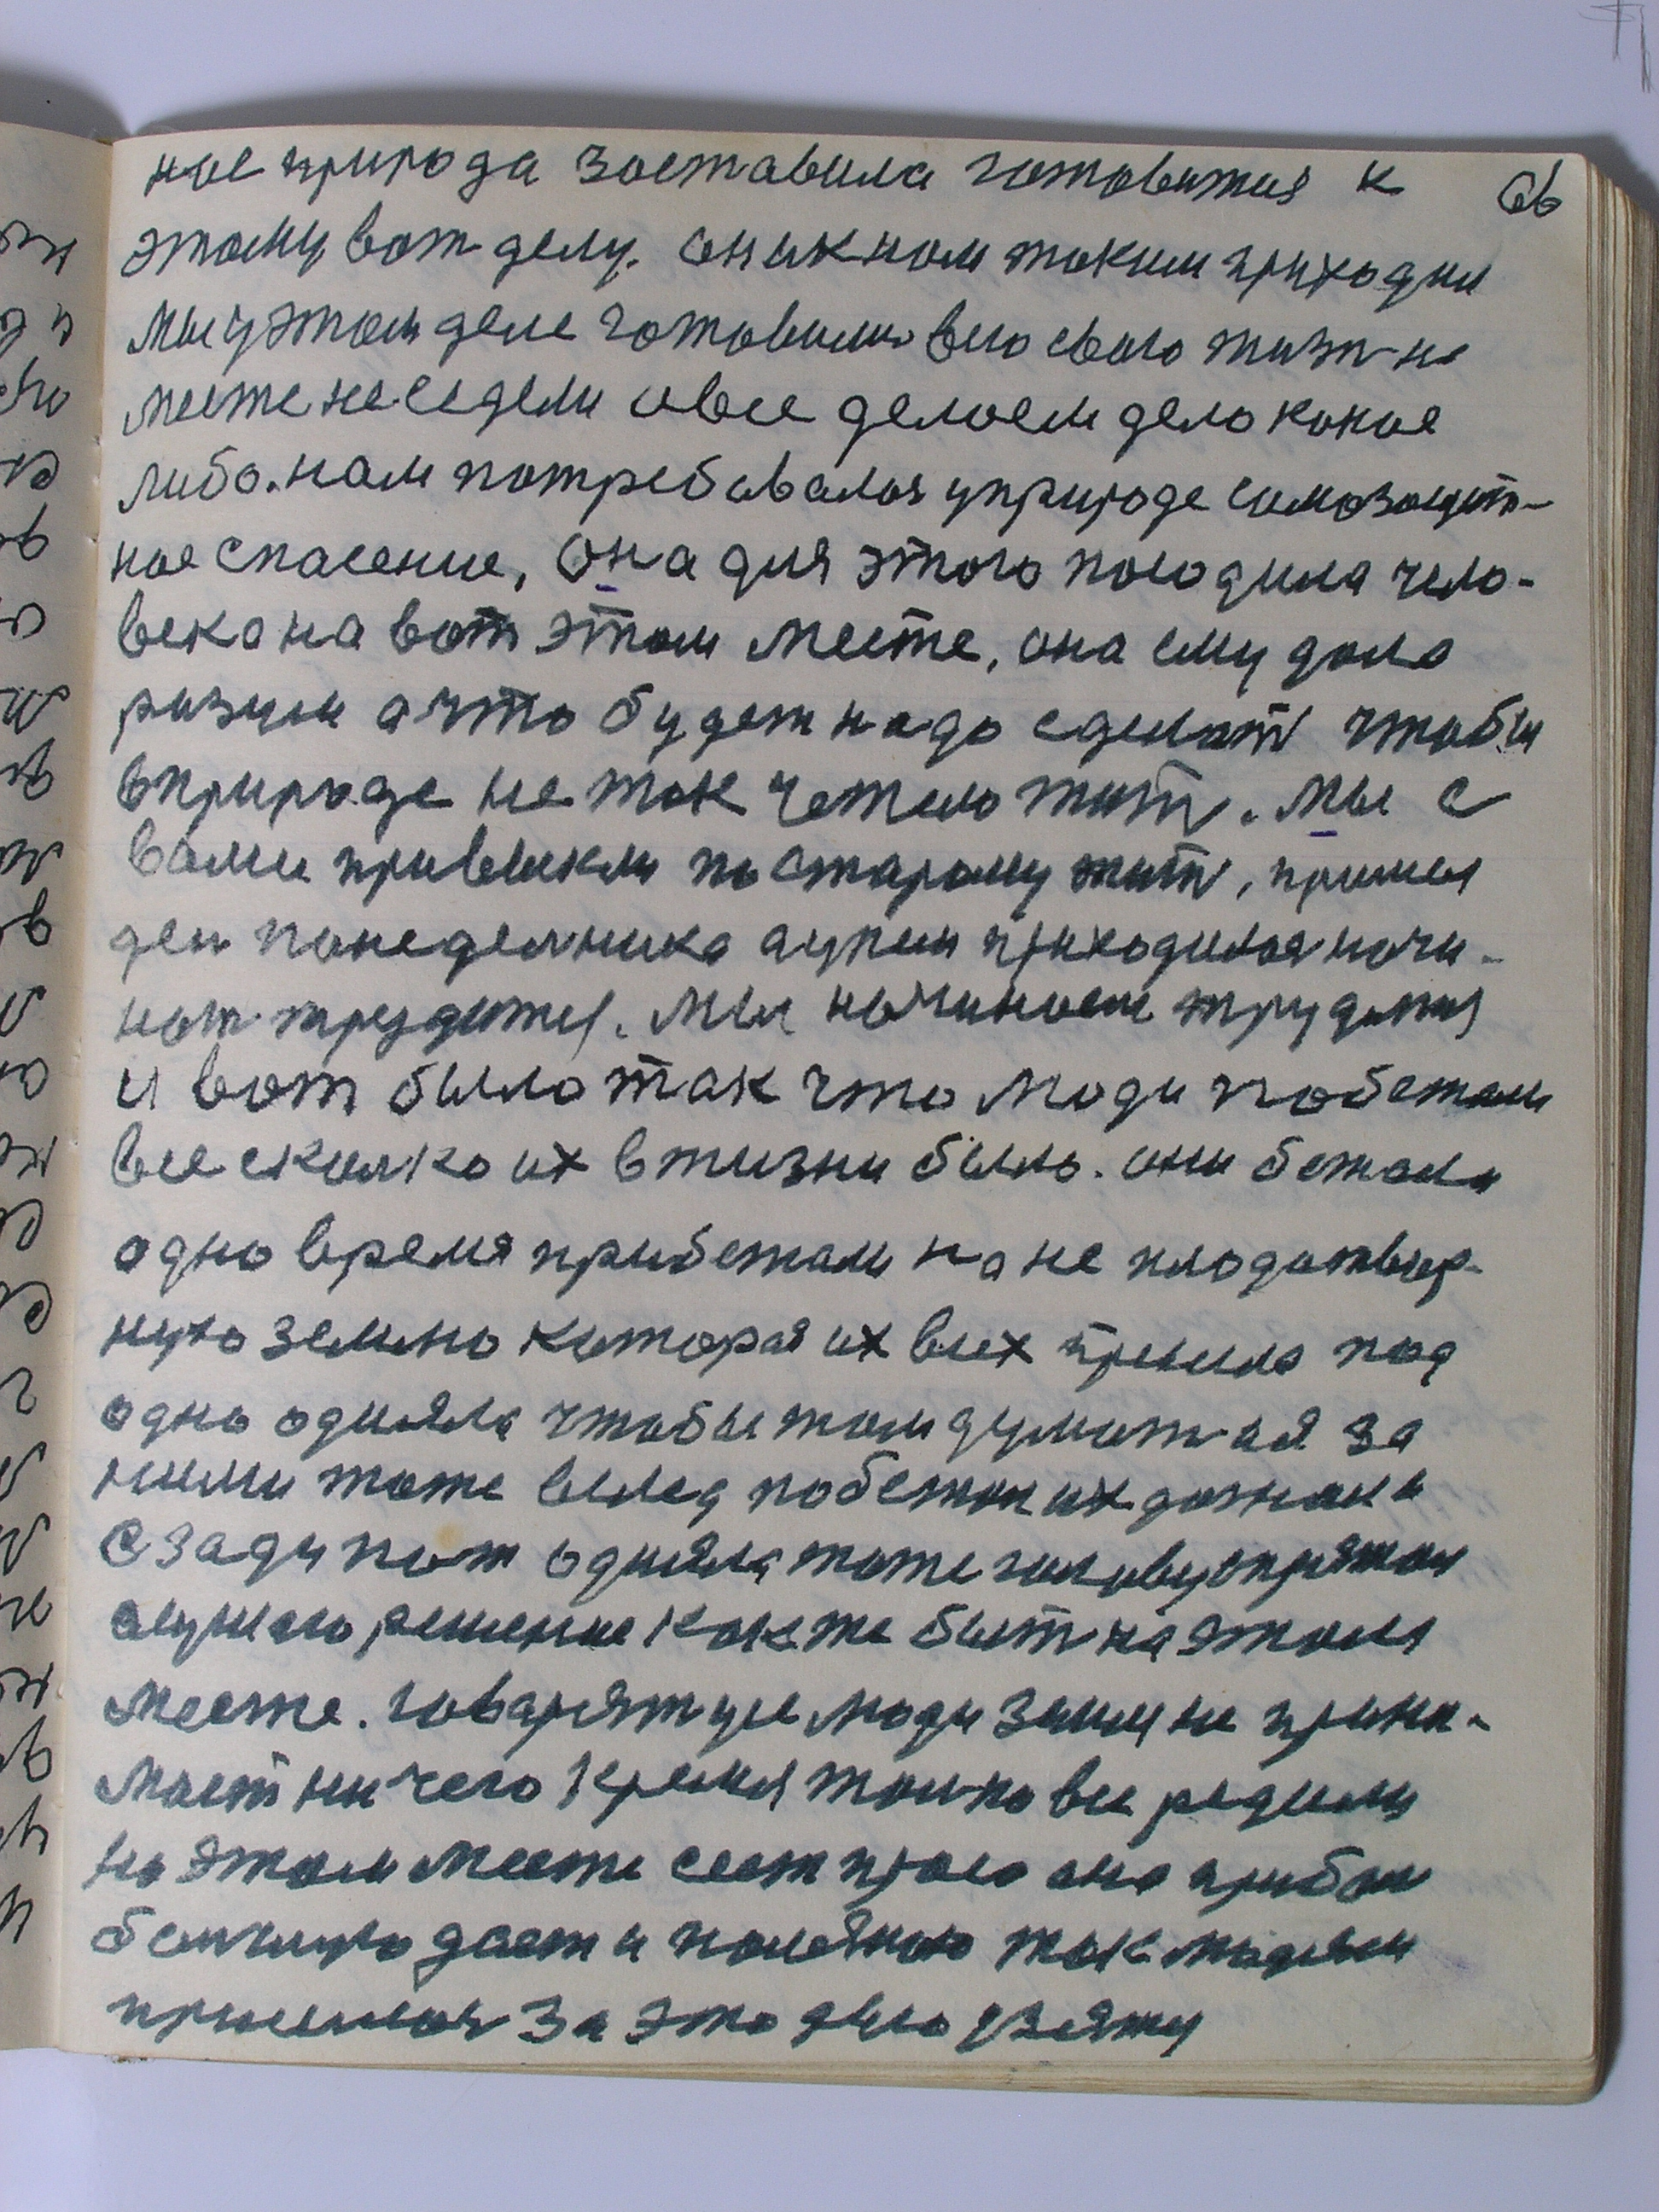 нае природа заставила готовится к 66
этому вот делу. они к нам таким приходли
мы у этом деле готовили всю свою жизн на
месте не седели а все делаем дело какое
либо. нам потребавалося у природе самозащит-
ное спасение, Она для этого породила чело-
века на вот этом месте, она ему дала
разум а что будет надо сделат чтобы
в природе не так тежело жит. Мы с
вами привыкли по старому жит, пришел
ден понеделника а у нем приходилося начи-
нат трудится. Мы начинаем трудится
и вот было так что люди побежали
все сколко их в жизни было. они бежали
одно время прибежали на не плодатвор-
ную землю которая их всех примла под
одно одияла чтобы там думат ия за
ними тоже вслед побежал их догнал и
сзади под одияла тоже голову спрятал
слушаю решение как же быт на этом
месте. говарят усе люди зиму не прини-
мает ничего кремя толко все редили
на этом месте сеет просо она прибыл
болшую дает и полезною так людям
пришлося за это дело узятц